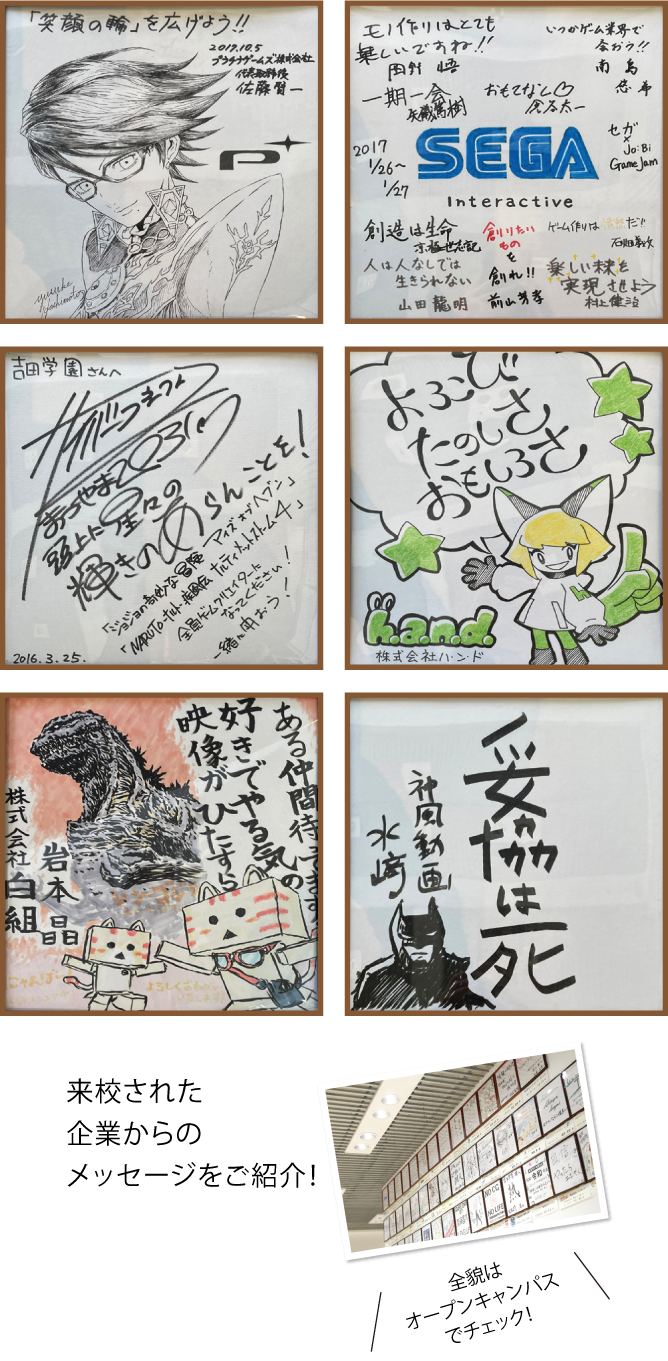 「笑顔の輪」を広げよう!!
2017.10.5
プラチナゲームズ株式会社
代表取締役
佐藤賢一
P
モノ作りはとても
楽しいですね!!
いつかゲーム業界で
会おう!!
南島
悠希
一期一会
おもてなし♡
2017
1/26〜
1/27
SEGA
Interactive
セガ
×
Jo:Bi
GameJam
創造は生命
創りたい
もの
を
創れ!!
前山芳孝
ゲーム作りは
だ!!
人は人なしでは
生きられない
山田龍明
楽しい未来を
実現させよう
村上健治
吉田学園さんへ
頭上に星々の
輝きのあらんことを!
「ジョジョの奇妙な冒険 アイズオブヘブン」
「NARUTO-ナルト-疾風伝 ナルティメットストーム4」
全員ゲームクリエイターに
なってください!
一緒に戦おう!
2016.3.25.
よろこび
たのしさ
おもしろさ
h.a.n.d.
株式会社ハ・ン・ド
ある仲間待ってます
好きでやる気の
映像がひたすら
岩本晶
株式会社白組
妥協は死
神風動画
水﨑
来校された
企業からの
メッセージをご紹介!
NO CG
NO LIFE
全貌は
オープンキャンパス
でチェック!